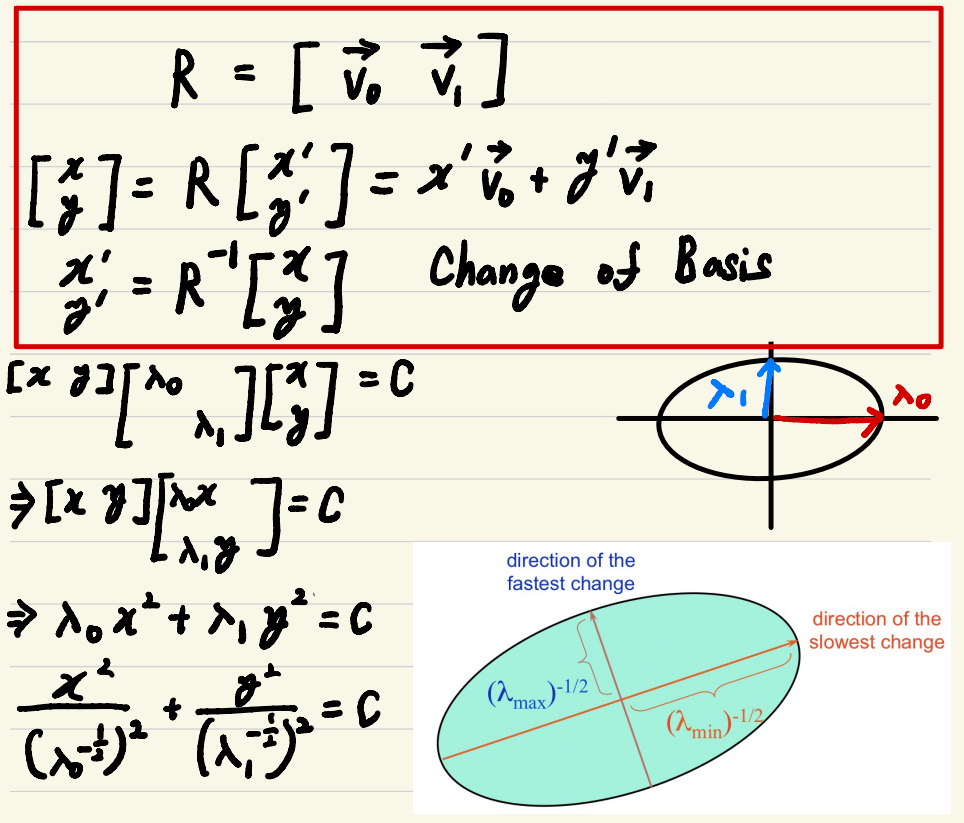 R = [ v⃗₀ v⃗₁ ]
[x y] = R [x′ y′] = x′ v⃗₀ + y′ v⃗₁
x′ y′ = R⁻¹ [x y] Change of Basis
[x y] [λ₀ λ₁] [x y] = C
λ₁ λ₀
⇒ [x y] [λ₀x λ₁y] = C
⇒ λ₀x² + λ₁y² = C
x² / (λ₀^{-1/2})² + y² / (λ₁^{-1/2})² = C
direction of the
fastest change
direction of the
slowest change
(λmax)^{-1/2}
(λmin)^{-1/2}